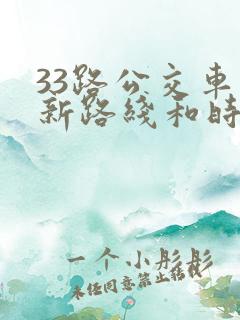 33路公交车
新路线和时
一个小彤彤
未经同意禁止转载